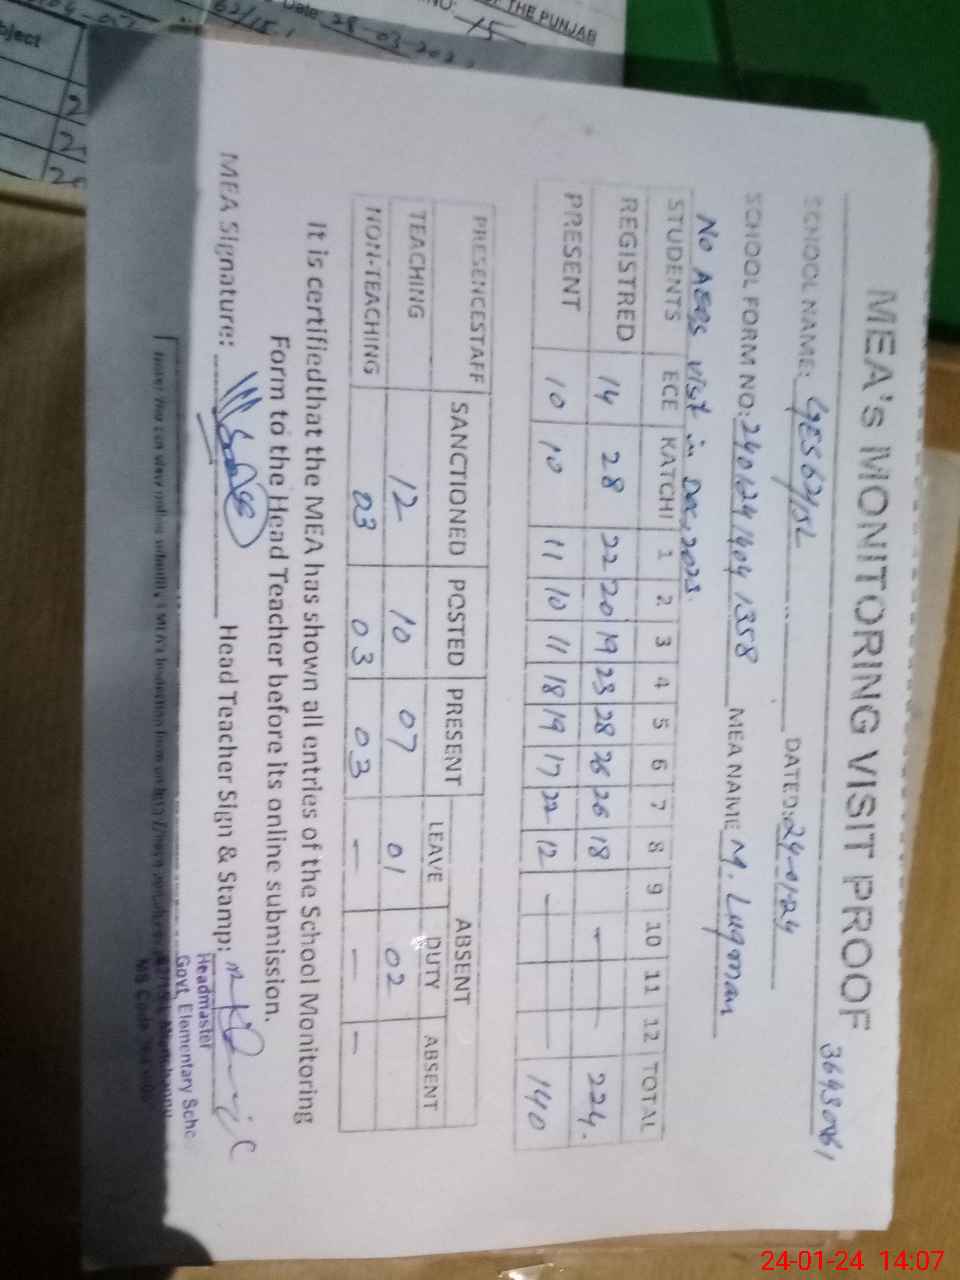 MEA's MONITORING VISIT PROOF
36430061
SCHOOL NAME: GES 62/15L DATED: 24-01-24
SCHOOL FORM NO: 2401241404 1358 MEA NAME M. Luqman
No AEOs visit in Dec, 2023.
STUDENTS ECE KATCHI 1 2 3 4 5 6 7 8 9 10 11 12 TOTAL
REGISTRED 14 28 22 20 19 23 28 26 26 18 — 224.
PRESENT 10 10 11 10 11 18 19 17 22 12 — 140
PRESENCESTAFF SANCTIONED POSTED PRESENT ABSENT
LEAVE DUTY ABSENT
TEACHING 12 10 07 01 02
NON-TEACHING 03 03 03 — — —
It is certifiedthat the MEA has shown all entries of the School Monitoring
Form to the Head Teacher before its online submission.
MEA Signature: Head Teacher Sign & Stamp:
Headmaster
Govt. Elementary Scho
Date 28-03-202
15
THE PUNJAB
62/15
bject
24-01-24 14:07